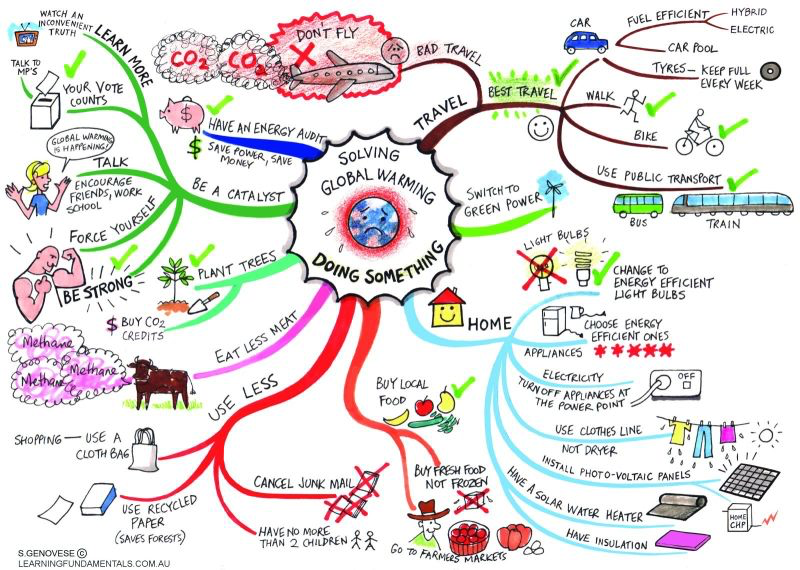 SOLVING
GLOBAL WARMING
DOING SOMETHING
TRAVEL
BAD TRAVEL
DON'T FLY
CO2
CO2
BEST TRAVEL
CAR
FUEL EFFICIENT
HYBRID
ELECTRIC
CAR POOL
TYRES — KEEP FULL
EVERY WEEK
WALK
BIKE
USE PUBLIC TRANSPORT
BUS
TRAIN
SWITCH TO
GREEN POWER
HOME
LIGHT BULBS
CHANGE TO
ENERGY EFFICIENT
LIGHT BULBS
APPLIANCES
CHOOSE ENERGY
EFFICIENT ONES
ELECTRICITY
TURN OFF APPLIANCES AT
THE POWER POINT
OFF
USE CLOTHES LINE
NOT DRYER
INSTALL PHOTO-VOLTAIC PANELS
HOME
CHP
HAVE A SOLAR WATER HEATER
HAVE INSULATION
BUY LOCAL
FOOD
BUY FRESH FOOD
NOT FROZEN
GO TO FARMERS MARKETS
USE LESS
SHOPPING — USE A
CLOTH BAG
USE RECYCLED
PAPER
(SAVES FORESTS)
CANCEL JUNK MAIL
HAVE NO MORE
THAN 2 CHILDREN
EAT LESS MEAT
Methane
Methane
Methane
PLANT TREES
$ BUY CO2
CREDITS
BE A CATALYST
LEARN MORE
WATCH AN
INCONVENIENT
TRUTH
YOUR VOTE
COUNTS
TALK TO
MP'S
TALK
ENCOURAGE
FRIENDS, WORK
SCHOOL
GLOBAL WARMING
IS HAPPENING!
FORCE YOURSELF
BE STRONG
HAVE AN ENERGY AUDIT
$ SAVE POWER, SAVE
MONEY
$
S.GENOVESE ©
LEARNINGFUNDAMENTALS.COM.AU